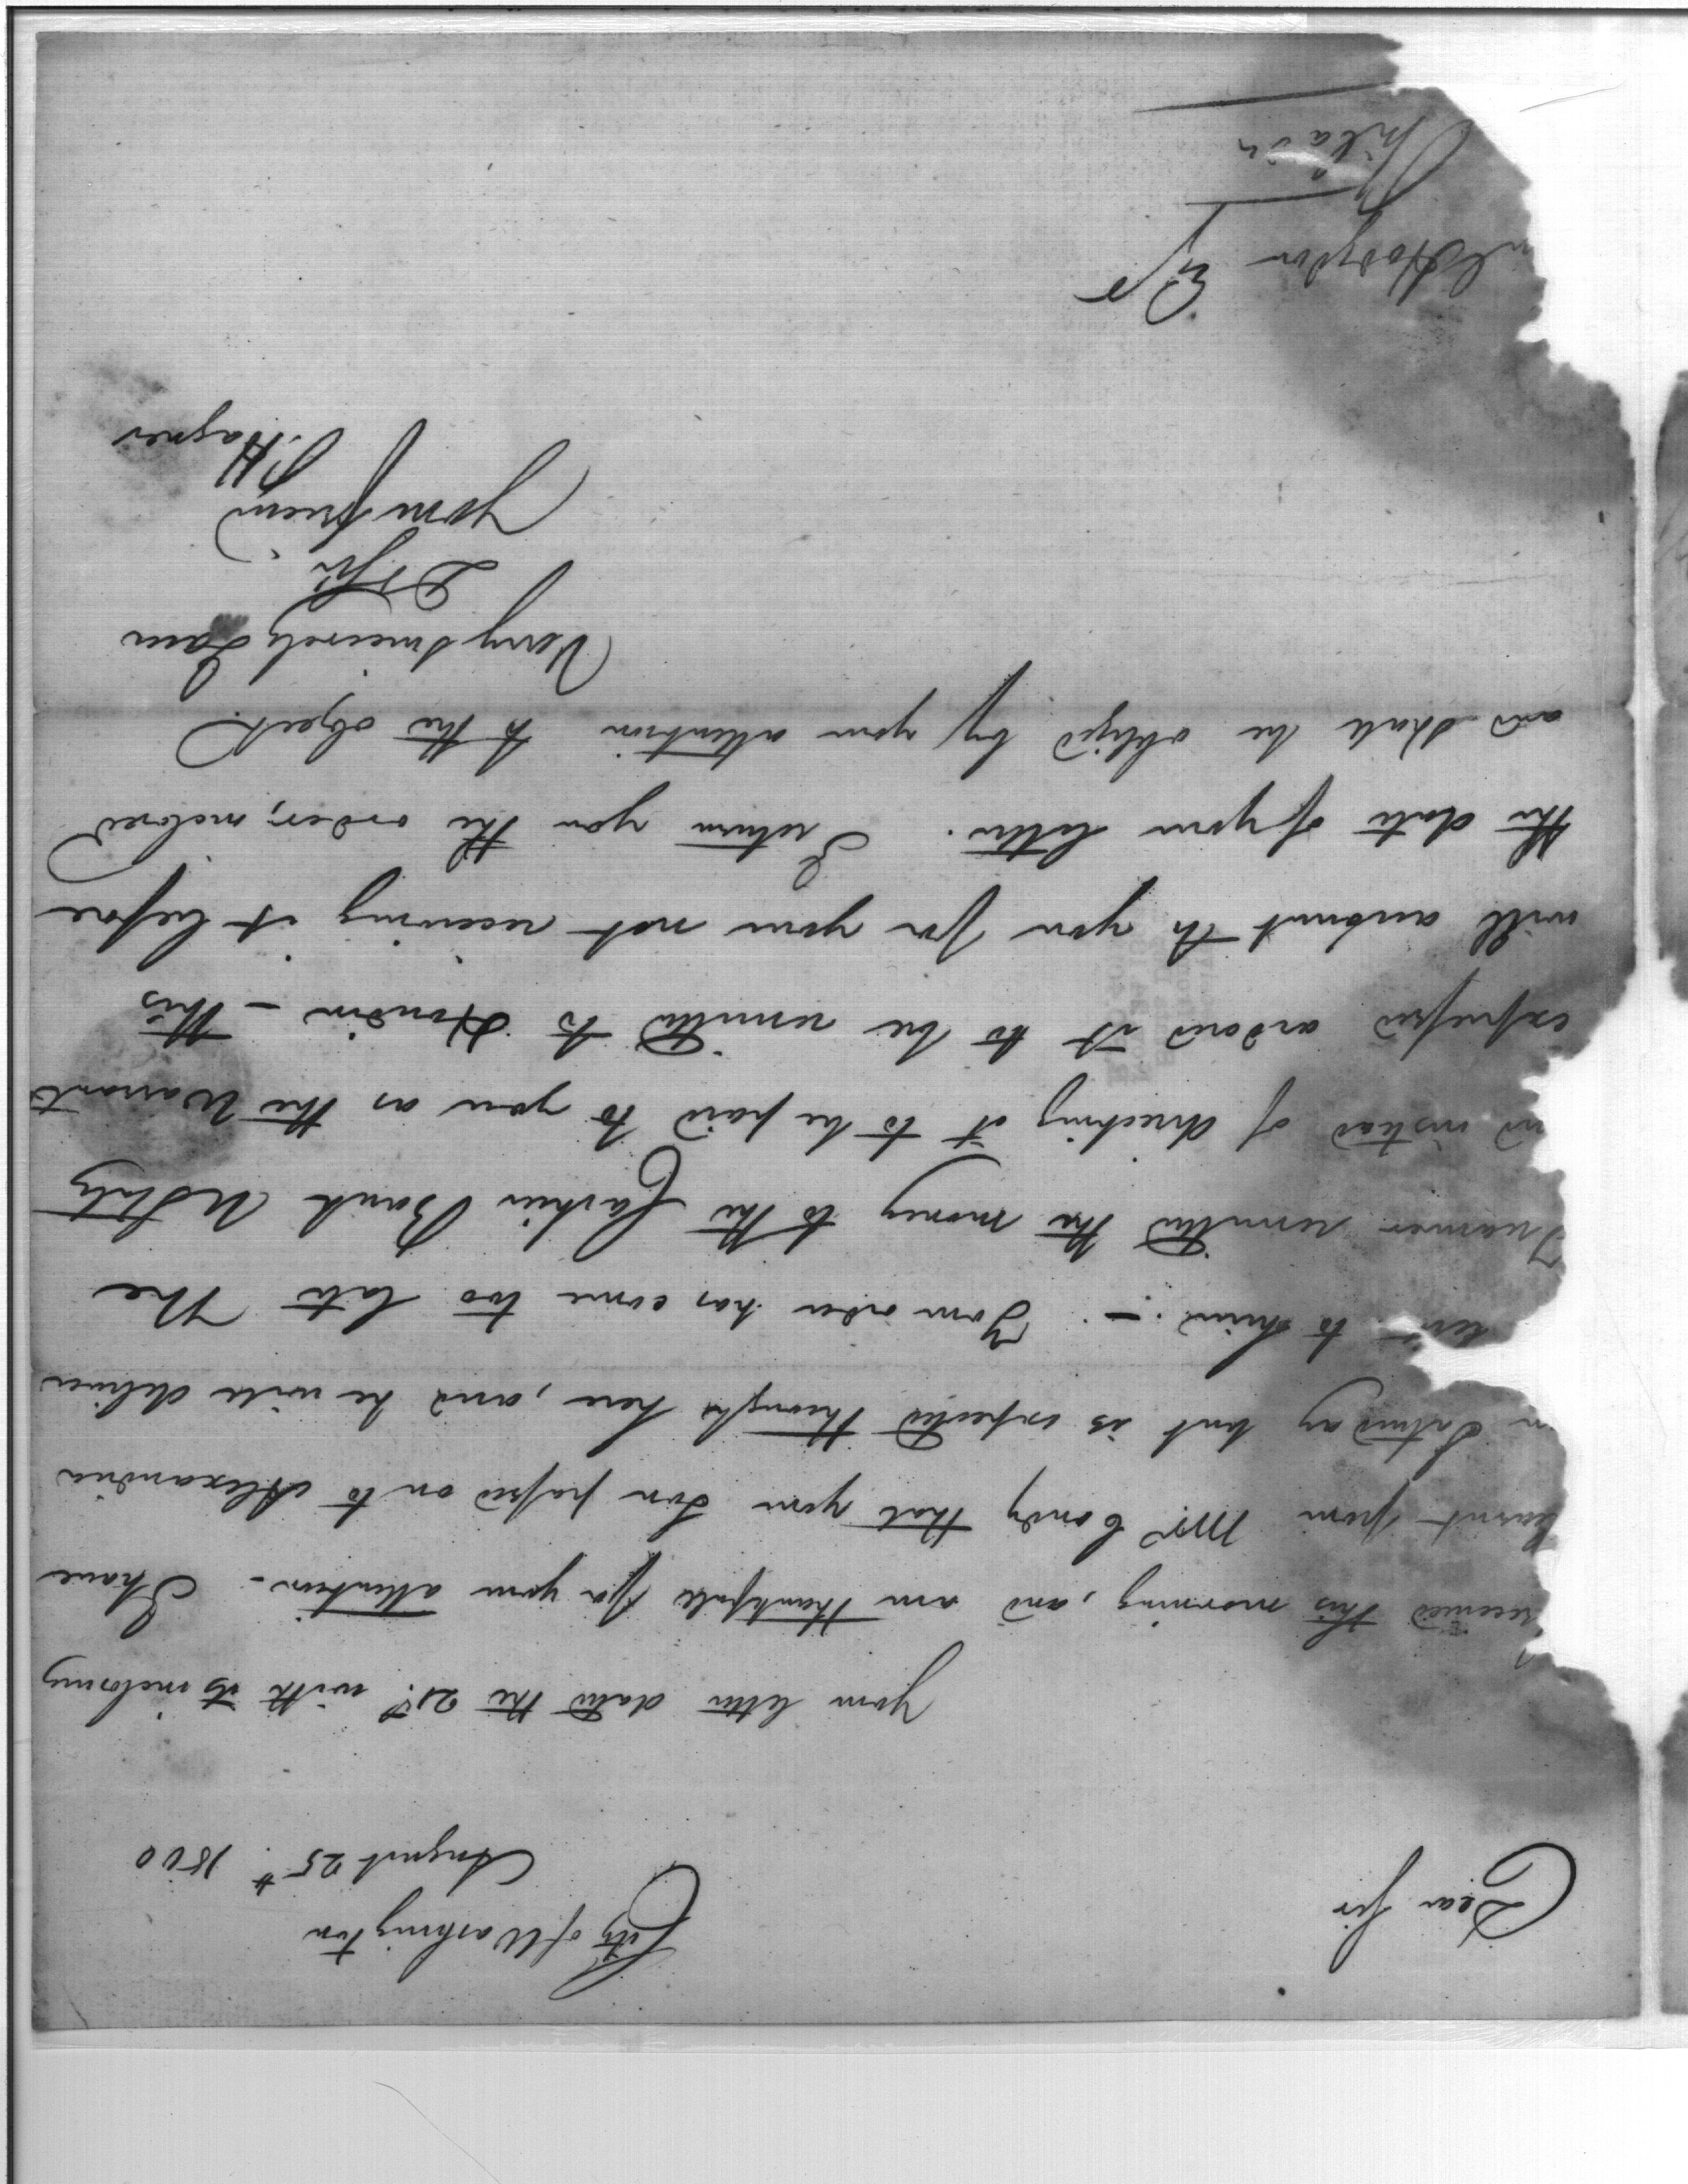 City of Washington
August 25th. 1800
Dear Sir
Your letter dated the 21st. with its inclosing
received this morning, and am thankfull for your attention. I have
learnt from Mr Condy that your Son passed on to Alexandria
on Saturday but is expected through here, and he will deliver
to him. Your order has come too late The
Treasurer remitted the money to the Cashier Bank U States
and instead of directing it to be paid to you as the Warrant
expressed ordered it to be remitted to Hander - this
will account to you for your not receiving it before
the date of your letter. I return you the order, inclosed
and shall be obliged by your attention to the object.
Very Sincerely I am
D Sir
Your friend
P. Hagner
l Hodgdon Esqr
Philada